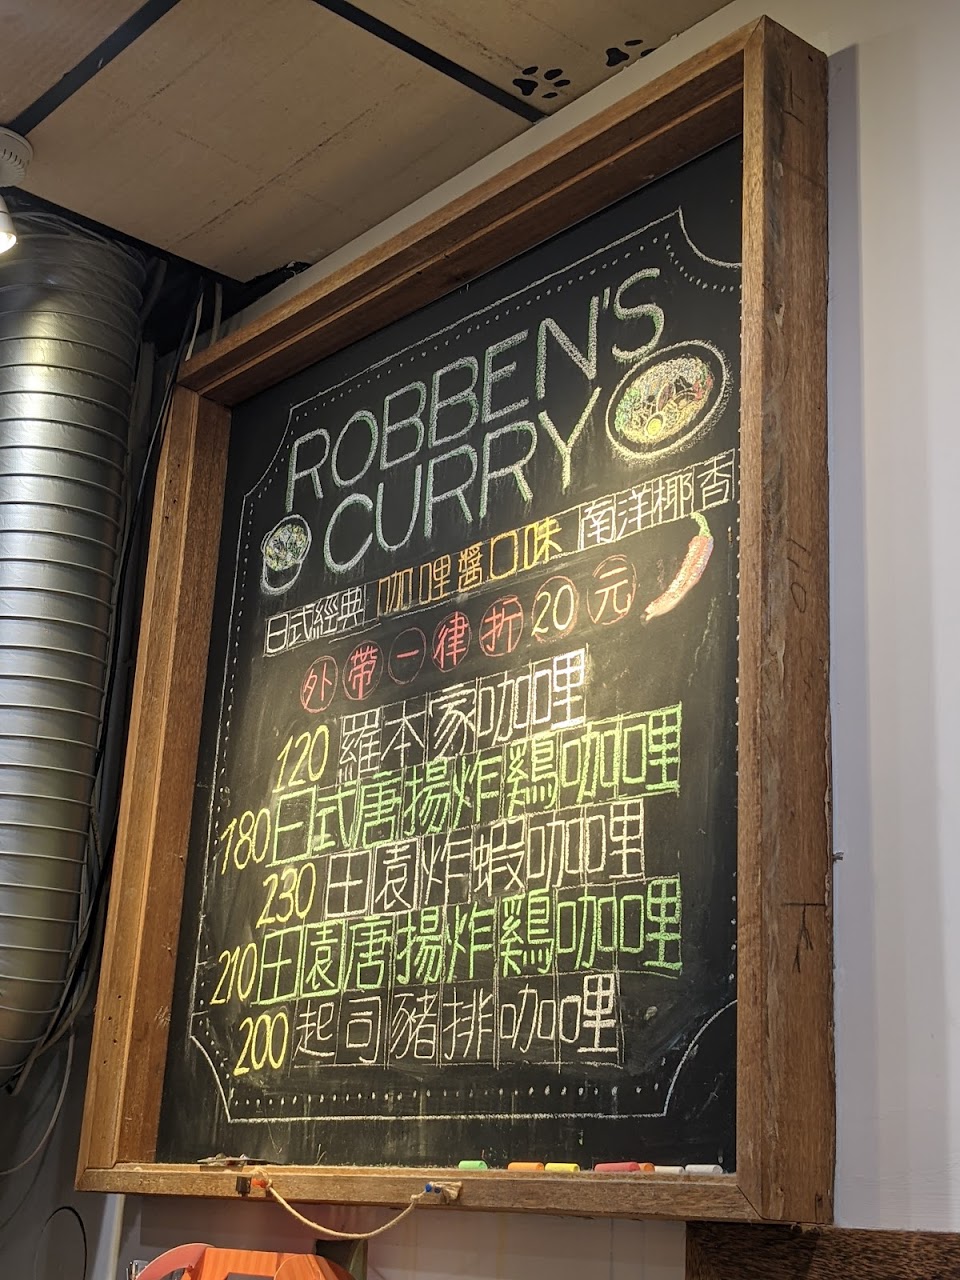 ROBBEN'S
CURRY
日式經典 咖哩醬口味 南洋椰香
外帶一律折20元
120 羅本家咖哩
180 日式唐揚炸鷄咖哩
230 田園炸蝦咖哩
210 田園唐揚炸鷄咖哩
200 起司豬排咖哩